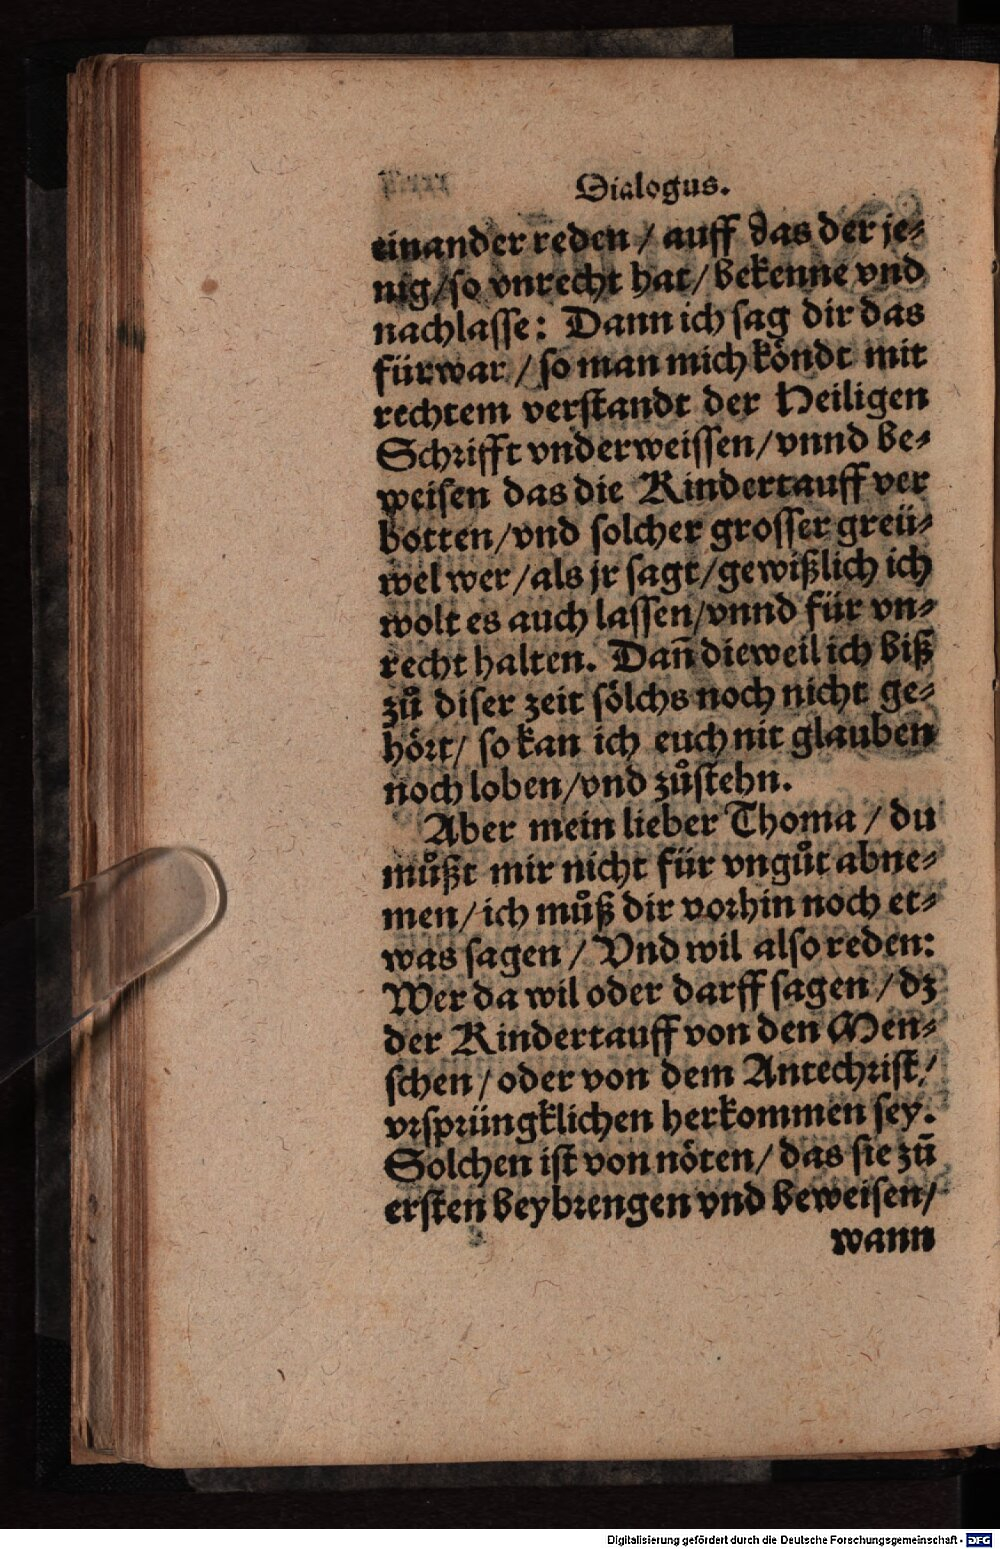 Dialogus.
einander reden / auff das der je⸗
nig / so vnrecht hat / bekenne vnd
nachlasse: Dann ich sag dir das
fürwar / so man mich köndt mit
rechtem verstandt der Heiligen
Schrifft vnderweissen / vnnd be⸗
weisen das die Kindertauff ver
botten / vnd solcher grosser greü⸗
wel wer / als jr sagt / gewißlich ich
wolt es auch lassen / vnnd für vn⸗
recht halten. Dañ dieweil ich biß
zů diser zeit sölchs noch nicht ge⸗
hört / so kan ich euch nit glauben
noch loben / vnd zůstehn.
Aber mein lieber Thoma / du
můßt mir nicht für vngůt abne⸗
men / ich můß dir vorhin noch et⸗
was sagen / Vnd wil also reden:
Wer da wil oder darff sagen / dz
der Kindertauff von den Men⸗
schen / oder von dem Antechrist /
vrsprüngklichen herkommen sey.
Solchen ist von nöten / das sie zů
ersten beybrengen vnd beweisen /
wann
Digitalisierung gefördert durch die Deutsche Forschungsgemeinschaft - DFG